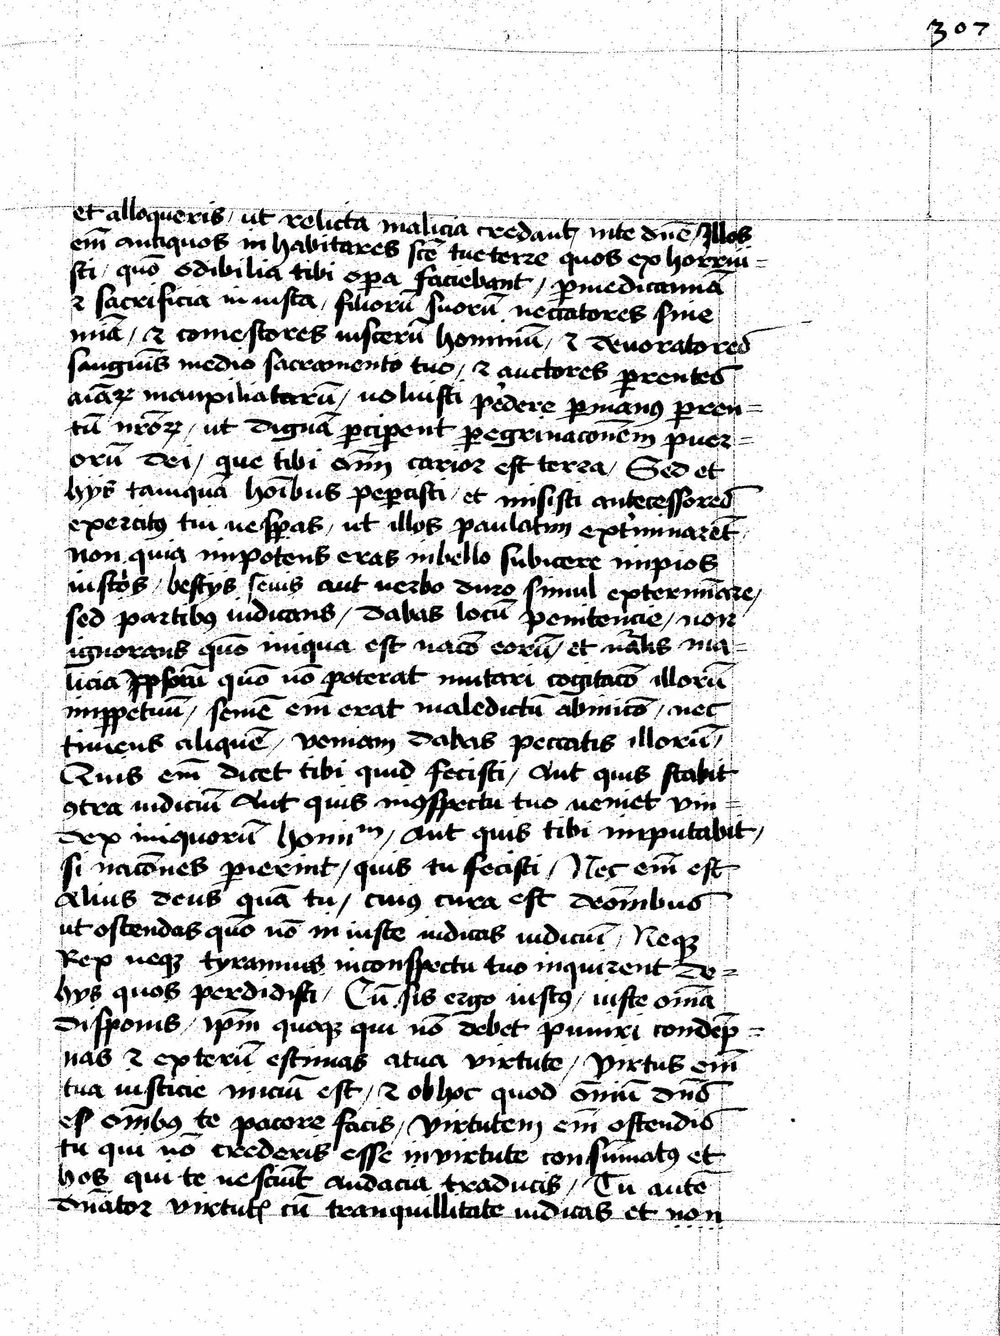 307
et alloqueris / ut relicta malicia credant / inte dn̄e / Illos
em̄ antiquos in habitares sce᷒ tue terre quos ex horrui=
sti / quō odibilia tibi opa faciebant / p medicaminā
⁊ sacrificia in iusta / filiorū suorū neccatores sine
mīa / ⁊ comestores viscerū hominū / ⁊ devoratores
sanguīs medio sacramento tuo / ⁊ auctores parentes
aīaꝝ inauxiliatarū / voluisti pᵈdere p manꝰ paren=
tū nr̄oꝝ / ut dignā pciperent peregrinacōnem puer=
orū dei / que tibi om̄i carior est terra / Sed et
hijs tamquā hoībus pepcisti / et misisti antecessores
exercitꝰ tui vespas / ut illos paulatim extͥminarēt /
non quia impotens eras in bello subicere impios
iustis / bestijs sevis aut verbo duro simul extermīare /
sed partibꝰ iudicans / dabas locū penitencie / non
ignorans quō iniqua est nacō eorū / et nāͣlis ma=
licia ip̄sorū quō nō poterat mutari cogitacō illorū
impp̄etuū / semē em̄ erat maledictū abinicō / nec
timens aliquē / veniam dabas peccatis illorū /
Quis em̄ dicet tibi quid fecisti / Aut quis stabit
ꝯtra iudiciū Aut quis inꝯspectu tuo veniet vin=
dex iniquorū homiᵐ / Aut quis tibi imputabit /
si nacōnes pierint / quis tu fecisti / Nec em̄ est
Alius deus quā tu / cuiꝰ cura est deōnibus
ut ostendas quō nō in iuste iudicas iudiciū / Neqꝫ
Rex neqꝫ tyrannus inconspectu tuo inquirent de=
hijs quos perdidisti / Cū sis ergo iustꝰ / iuste om̄a
disponis / ip̄m quoqꝫ qui nō debet puniri condēp=
nas ⁊ exterū estimas atua virtute / Virtus em̄
tua iusticie iniciū est / ⁊ ob hoc quod om̄iū dn̄s
es om̄ibꝰ te parcere facis / Virtutem em̄ ostendis
tu qui nō crederis esse in virtute consumatꝰ et
hos qui te nesciūt audacia traducis / Tu autē
dn̄ator virtutꝭ cū tranquillitate iudicas et non